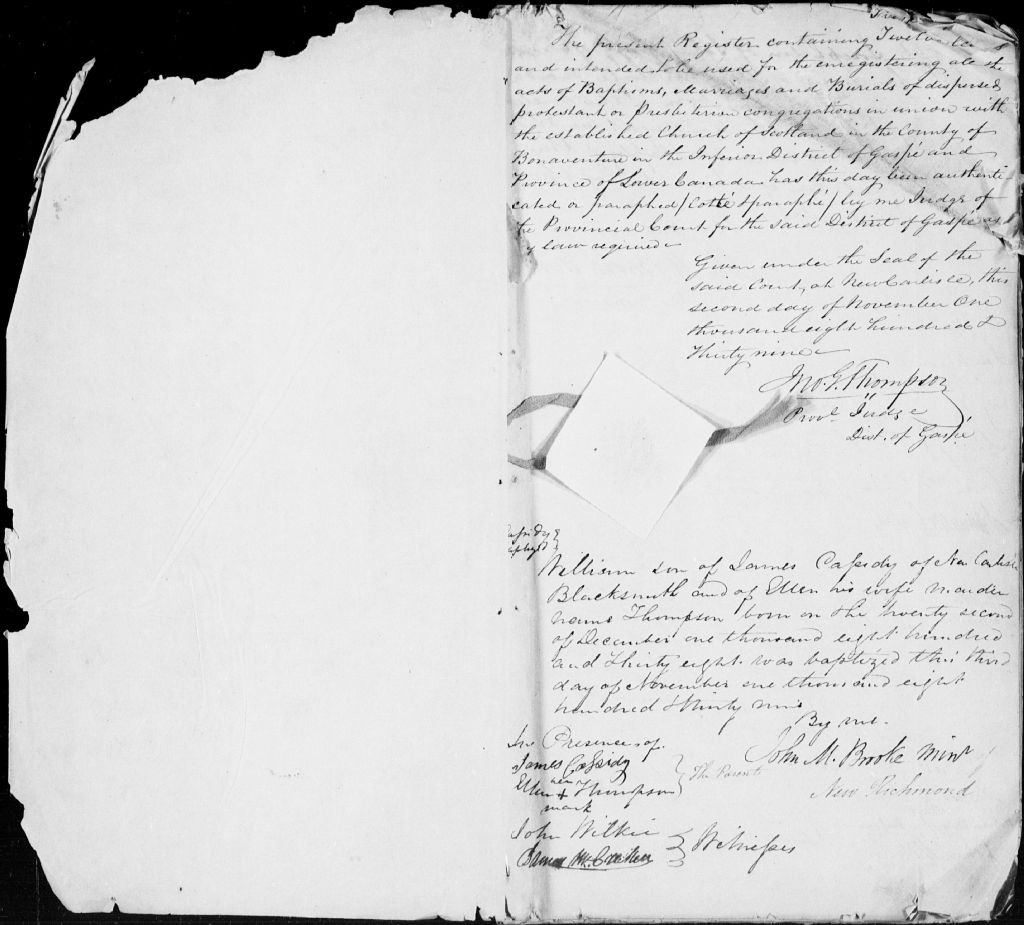 The present Register containing Twelve
and intended to be used for the enregistering all the
acts of Baptisms, Marriages and Burials of dispersed
protestant or Presbiterian congregations in union with
the established Church of Scotland in the County of
Bonaventure in the Inferior District of Gaspé and
Province of Lower Canada has this day been authenti
cated or paraphed / Cotté & paraphé / by me Judge of
the Provincial Court for the said District of Gaspé as
by law required
Given under the Seal of the
said Court, at New Carlisle, this
second day of November One
thousand eight hundred &
thirty nine
Jno. G. Thompson
Provl. Judge
Dist. of Gaspé
William son of James Cassidy of New Carlisle
Blacksmith and of Ellen his wife maiden
name Thompson born on the twenty second
of December one thousand eight hundred
and thirty eight was baptized this third
day of November one thousand eight
hundred & thirty nine
By me.
John M. Brooke Minr
New Richmond
In Presence of.
James Cassidy
her
Ellen + Thompson
mark
The Parents
John Wilkie
Witnesses